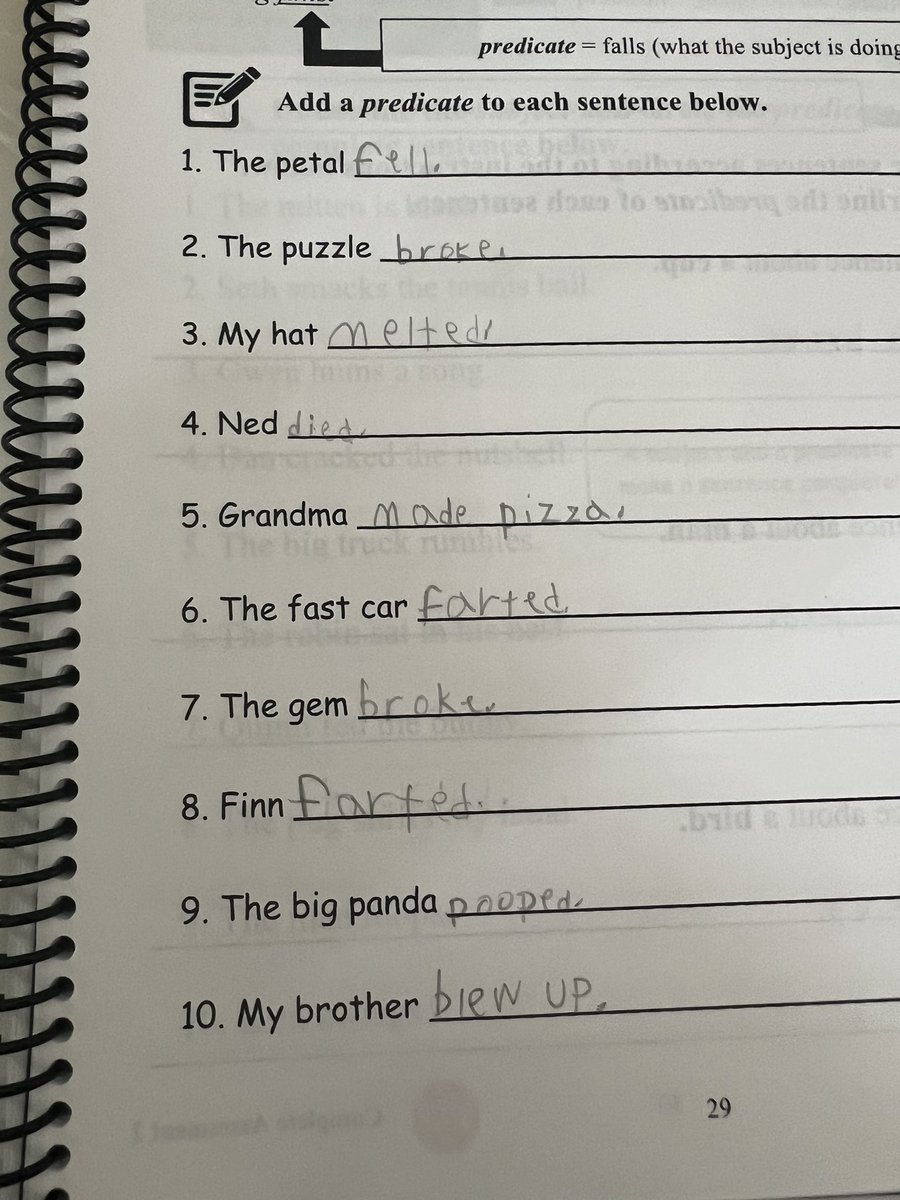 predicate = falls (what the subject is doing
Add a predicate to each sentence below.
1. The petal fell.
2. The puzzle broke.
3. My hat melted.
4. Ned died.
5. Grandma made pizza.
6. The fast car farted
7. The gem broke.
8. Finn farted.
9. The big panda pooped.
10. My brother blew up.
29